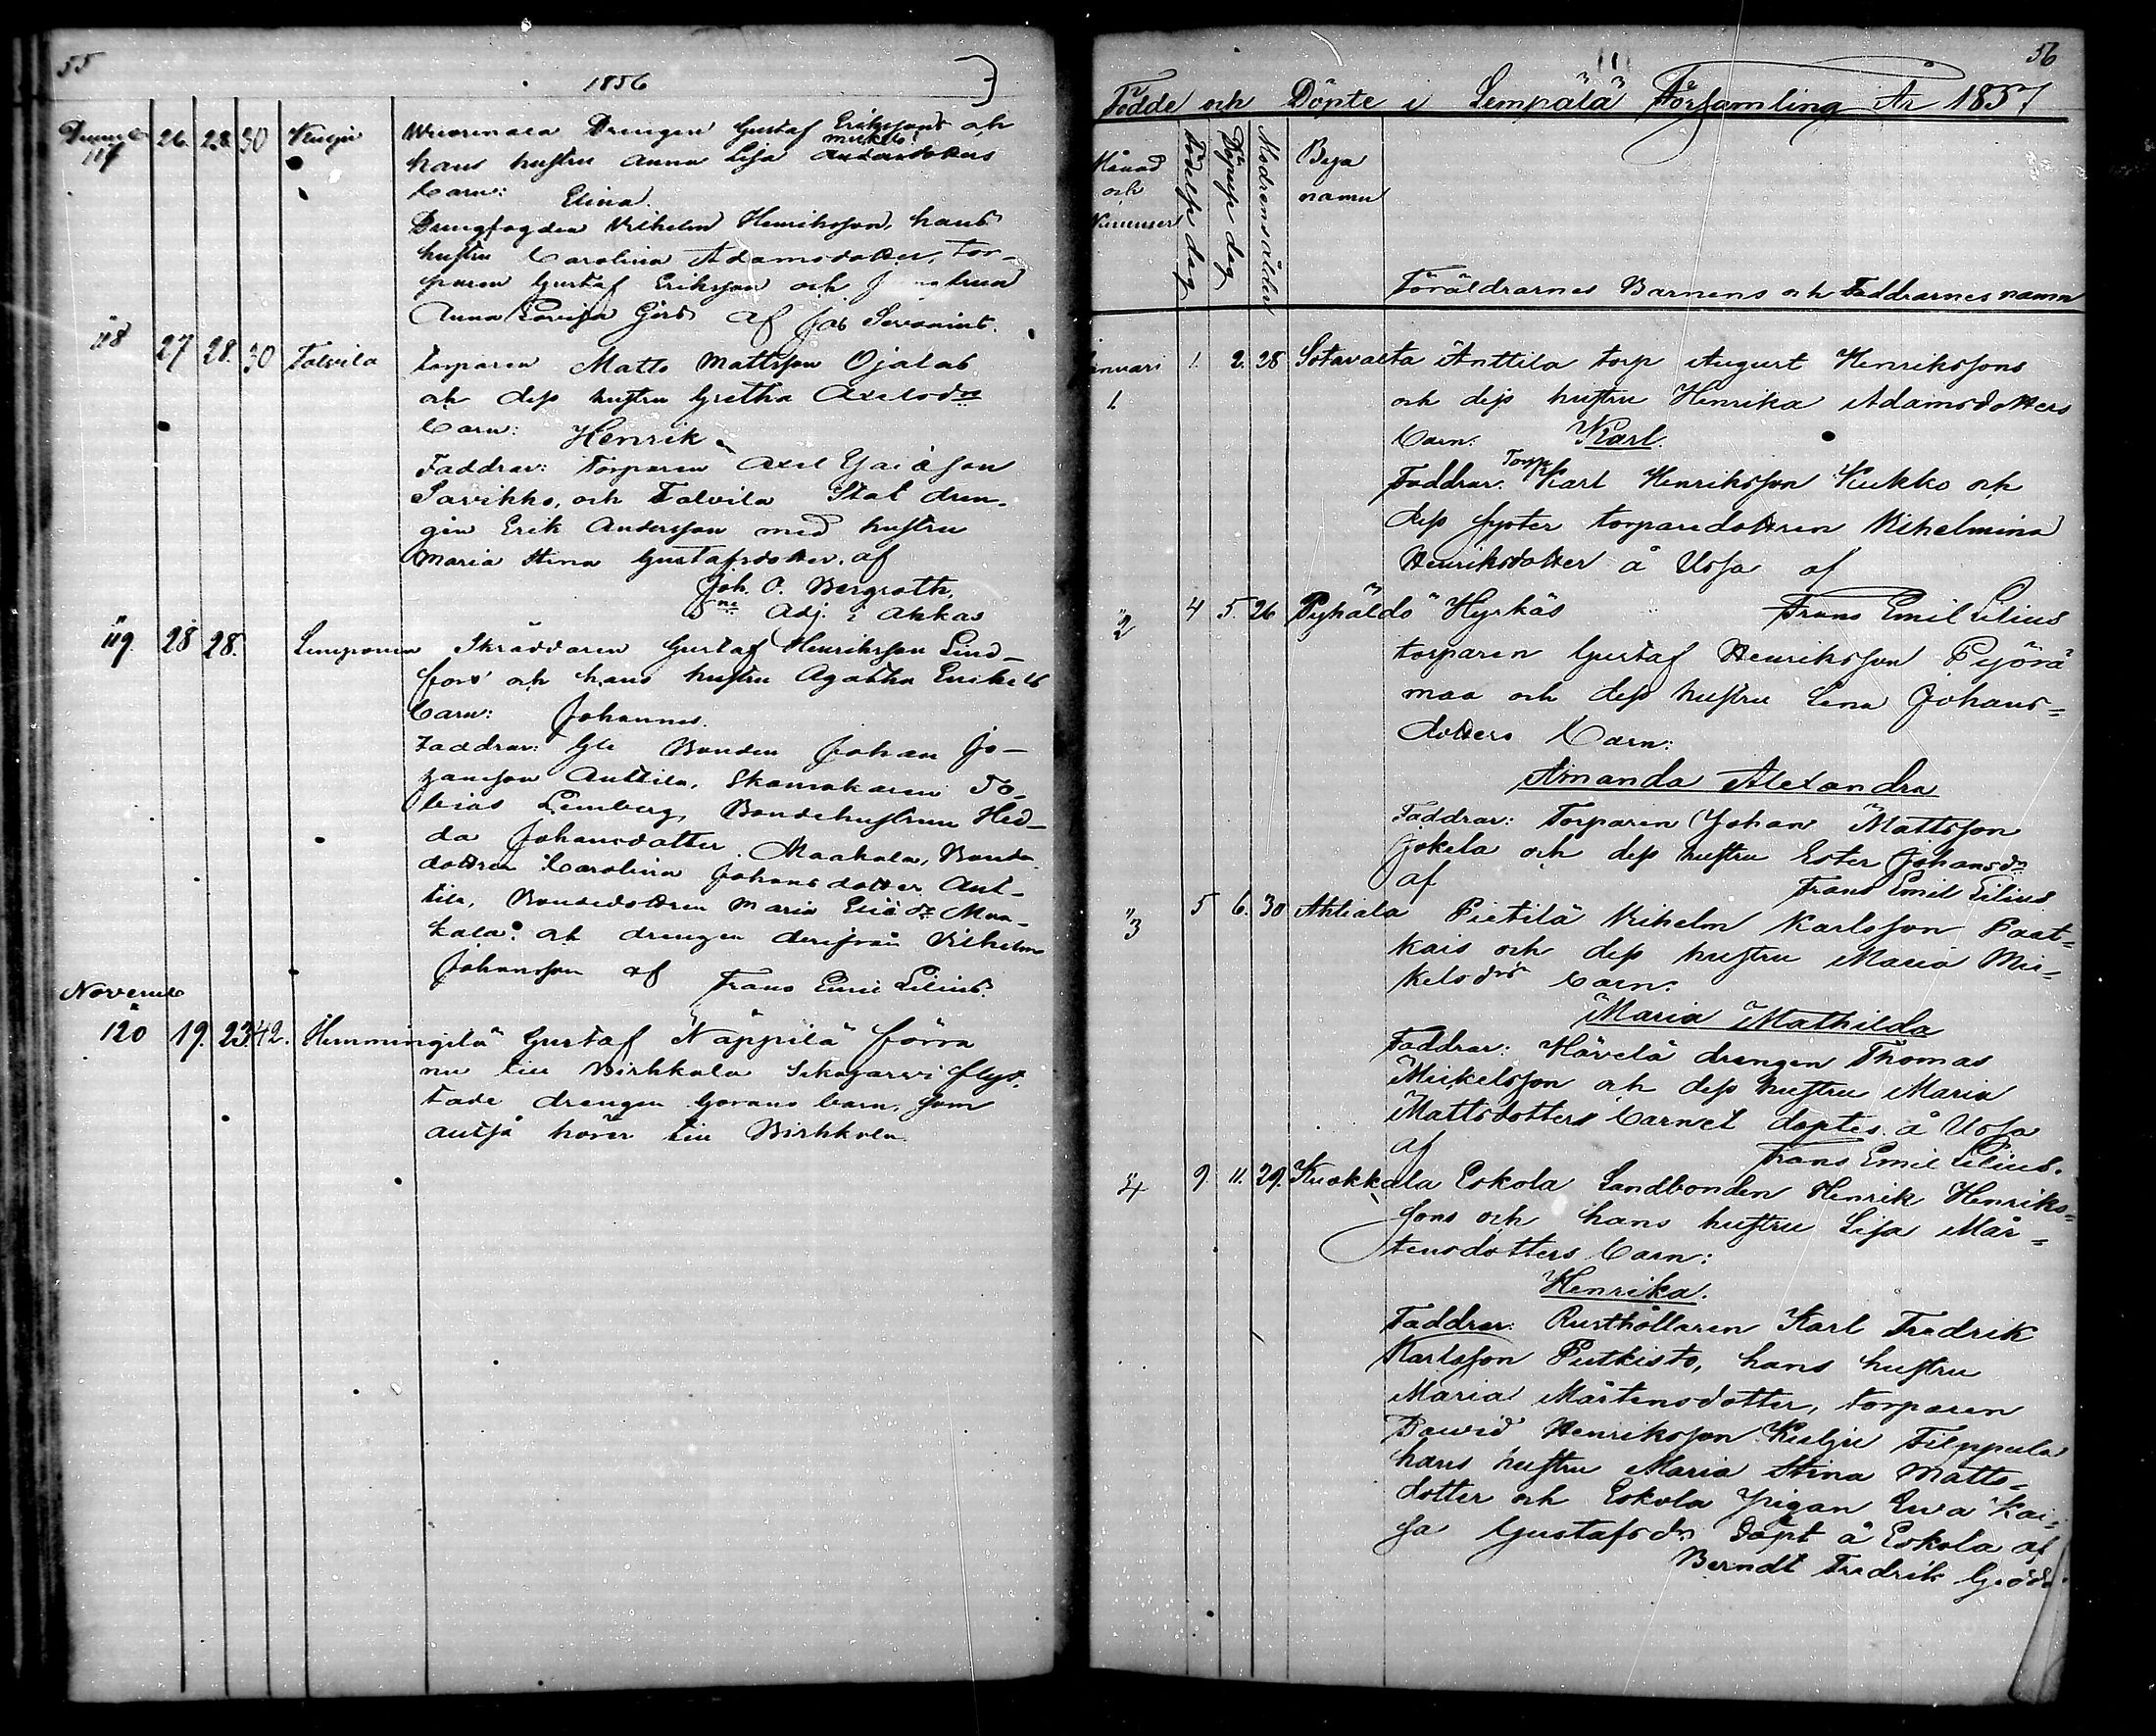 55
1856
Decemb. 117 26. 28. 30 Kulju Wuorenala Drengen Gustaf Erikssons och
hans hustru Anna Lisa Mickels
barn: Elina.
Drengfogden Vilhelm Henriksson, hans
hustru Carolina Adamsdotter, tor-
paren Gustaf Eriksson och
Anna Lovisa Gärs af Jos Servonius.
118 27 28. 30 Talvila torparen Matts Mattsson Ojalas
och dess hustru Gretha Axelsdrs
barn: Henrik
Faddrar: Torparen Axel
Savikko, och Talvila Stat dren-
gen Erik Andersson med hustru
Maria Stina Gustafsdotter. af
Joh. O. Bergroth,
Adj. i Akkas
119. 28 28. Lempoinen Skräddaren Gustaf Henriksson Lind-
fors och hans hustru Agatha Eriksds
barn: Johannes.
Faddrar: Gle Bonden Johan Jo-
hansson Anttila, Skomakaren To-
bias Lemberg, Bondehustrun Hed-
da Johansdotter Maakala, Bonde
dottren Carolina Johansdotter Ant-
tila, Bondedottren Maria Eliædr Maa-
kala. och drengen derifrån Vilhelm
Johansson af Frans Emil Lilius.
Novemb.
120 19. 23. 42. Hemmingilä Gustaf Näppilä förra
nu till Birkkala Sikojärvi flyt-
tade drengen Görans barn, som
altså hörer till Birkkala.
56
(1)
Födde och Döpte i Lempälä Församling År 1857
Månad och Nummer
Födelse dag
Döpelse dag
Modrens ålder
Bya namn
Föräldrarnes Barnens och Faddrarnes namn
Januari 1. 2. 28 Sotavalta Anttila torp August Henrikssons
1 och dess hustru Henrika Adamsdotters
barn: Karl.
Faddrar: Torp. Karl Henriksson Kukko och
dess syster torparedottren Vilhelmina
Henriksdotter å Uosa af
Frans Emil Lilius
2 4 5. 26 Pyhäldö Hyrkäs
torparen Gustaf Henriksson Pyörä
maa och dess hustru Lena Johans=
dotters barn:
Amanda Alexandra
Faddrar: Torparen Johan Mattsson
Jokela och dess hustru Ester Johansdr
af Frans Emil Lilius
3 5 6. 30 Ahtiala Pietilä Vilhelm Karlsson Paat=
kais och dess hustru Maria Mic=
kelsdrs barn:
Maria Mathilda
Faddrar: Hävelä drengen Thomas
Mickelsson och dess hustru Maria
Mattsdotters barnet döptes å Uosa
af Frans Emil Lilius.
4 9 11. 29. Kuokkala Eskola Landbonden Henrik Henriks=
sons och hans hustru Lisa Mår=
tensdotters barn:
Henrika.
Faddrar: Rusthållaren Karl Fredrik
Karlsson Putkisto, hans hustru
Maria Mårtensdotter, torparen
David Henriksson Kulju Filppula
hans hustru Maria Stina Matts=
dotter och Eskola pigan Eva Kai=
sa Gustafsdr Döpt å Eskola af
Berndt Fredrik